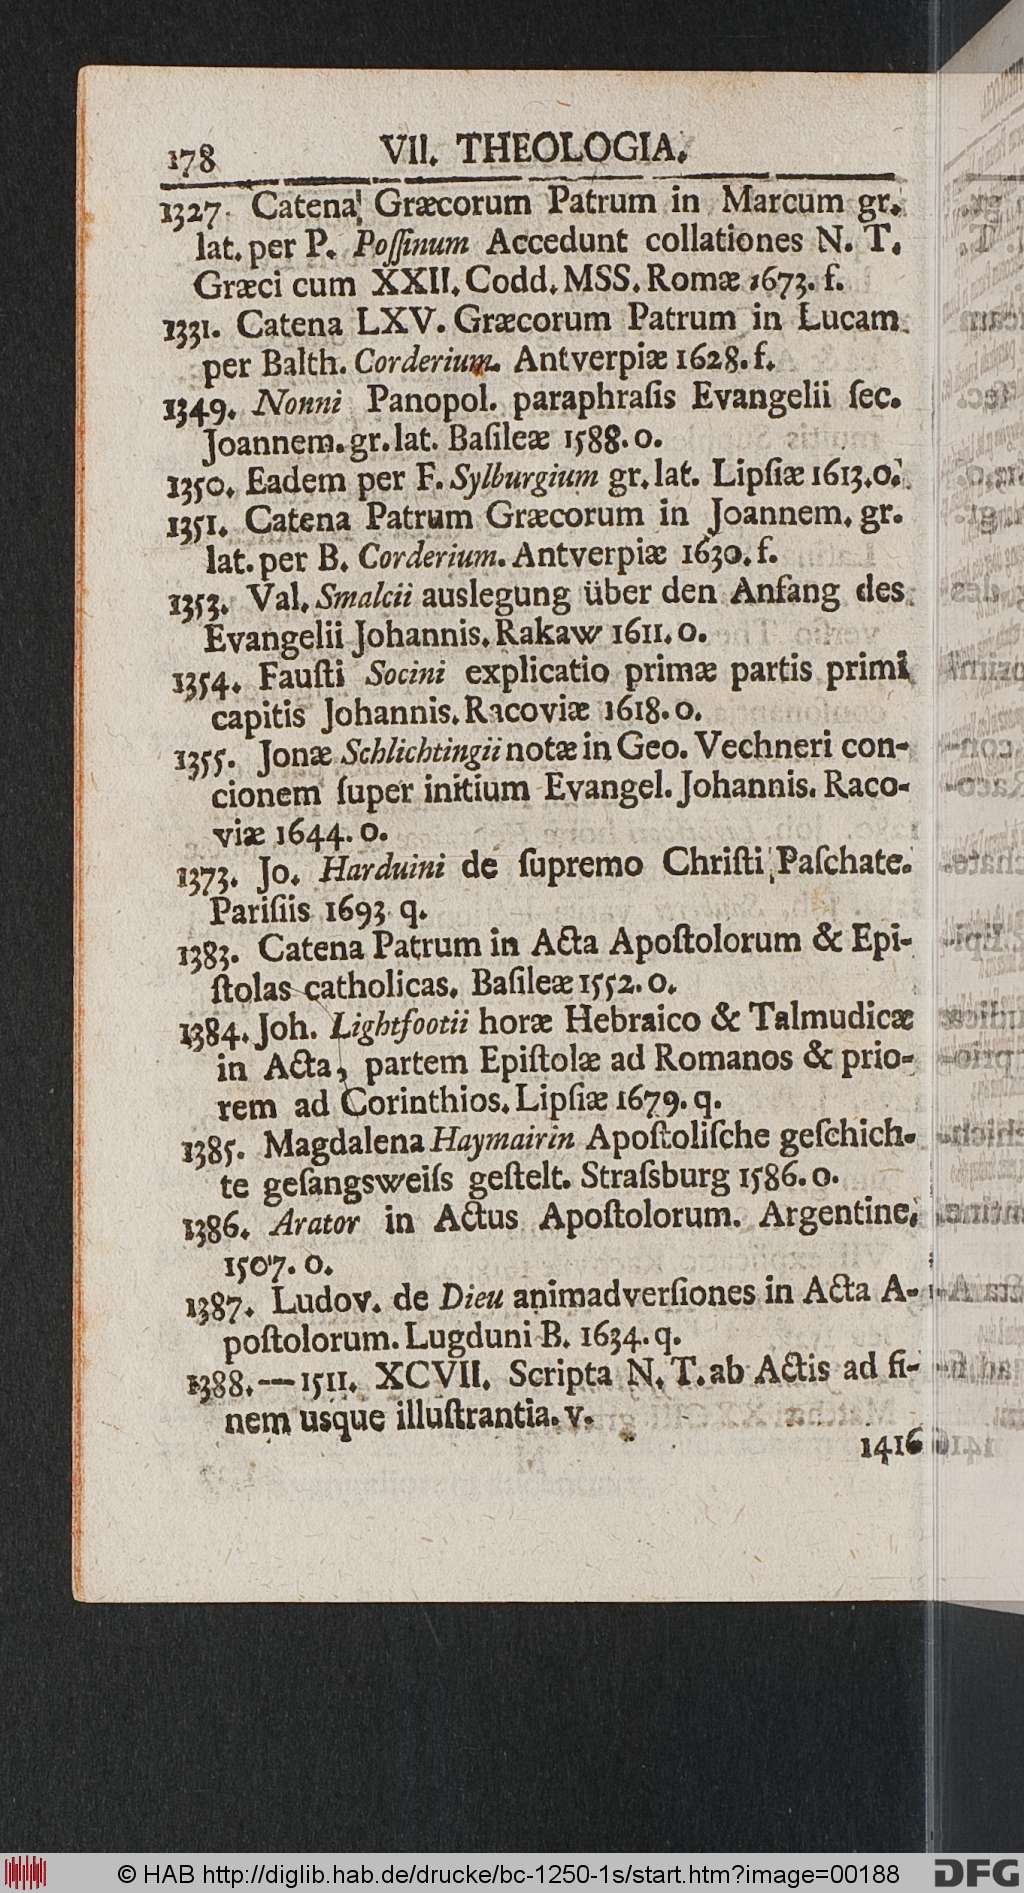 178 VII. THEOLOGIA.
1327. Catena Græcorum Patrum in Marcum gr.
lat. per P. Poſſinum Accedunt collationes N. T.
Græci cum XXII. Codd. MSS. Romæ 1673. f.
1331. Catena LXV. Græcorum Patrum in Lucam
per Balth. Corderium. Antverpiæ 1628. f.
1349. Nonni Panopol. paraphraſis Evangelii ſec.
Joannem. gr. lat. Baſileæ 1588. o.
1350. Eadem per F. Sylburgium gr. lat. Lipſiæ 1613. o.
1351. Catena Patrum Græcorum in Joannem. gr.
lat. per B. Corderium. Antverpiæ 1630. f.
1353. Val. Smalcii auslegung über den Anfang des
Evangelii Johannis. Rakaw 1611. o.
1354. Fauſti Socini explicatio primæ partis primi
capitis Johannis. Racoviæ 1618. o.
1355. Jonæ Schlichtingii notæ in Geo. Vechneri con-
cionem ſuper initium Evangel. Johannis. Raco-
viæ 1644. o.
1373. Jo. Harduini de ſupremo Chriſti Paſchate.
Pariſiis 1693 q.
1383. Catena Patrum in Acta Apoſtolorum & Epi-
ſtolas catholicas. Baſileæ 1552. o.
1384. Joh. Lightfootii horæ Hebraico & Talmudicæ
in Acta, partem Epiſtolæ ad Romanos & prio-
rem ad Corinthios. Lipſiæ 1679. q.
1385. Magdalena Haymairin Apoſtoliſche geſchich-
te geſangsweiſs geſtelt. Straſsburg 1586. o.
1386. Arator in Actus Apoſtolorum. Argentine.
1507. o.
1387. Ludov. de Dieu animadverſiones in Acta A-
poſtolorum. Lugduni B. 1634. q.
1388. — 1511. XCVII. Scripta N. T. ab Actis ad fi-
nem usque illuſtrantia. v.
1416
© HAB http://diglib.hab.de/drucke/bc-1250-1s/start.htm?image=00188 DFG